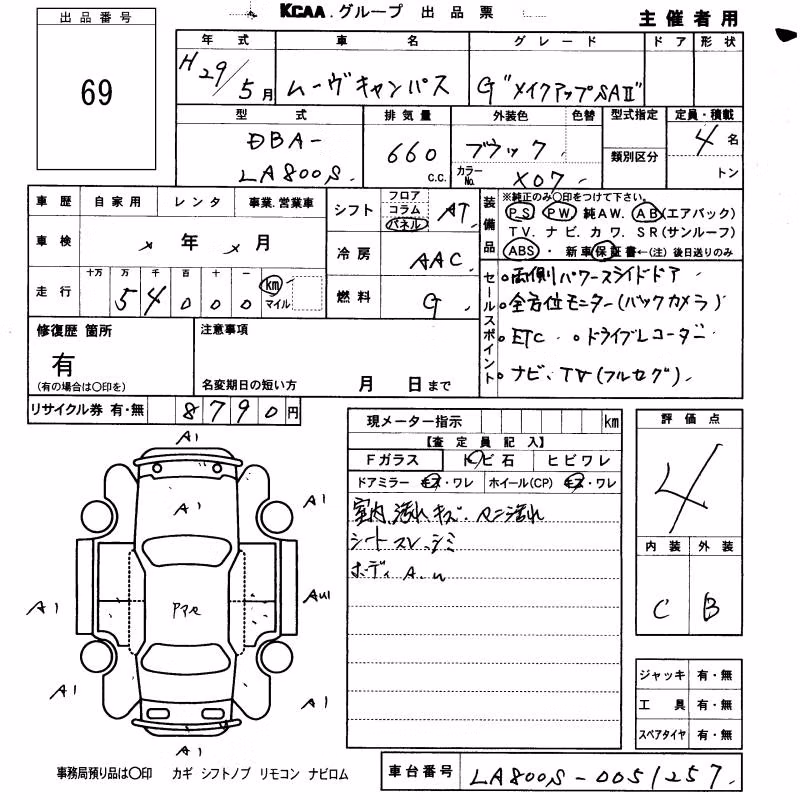 KCAA グループ 出品票
主催者用
出品番号
69
年式 車名 グレード ドア 形状
H29/5月 ムーヴキャンバス G"メイクアップSAII"
型式 排気量 外装色 色替 型式指定 定員・積載
DBA-
LA800S 660 c.c. ブラック カラーNo. X07 類別区分 4名
トン
車歴 自家用 レンタ 事業.営業車
車検 × 年 × 月
走行 十万 万 千 百 十 一
54000 km マイル
シフト フロア コラム パネル AT
冷房 AAC
燃料 G
装備品 ※純正のみ〇印をつけて下さい。
PS PW 純AW. AB(エアバック)
TV. ナビ. カワ. SR(サンルーフ)
ABS・新車保証書←(注)後日送りのみ
セールスポイント
両側パワースライドドア
全方位モニター(バックカメラ)
ETC ドライブレコーダー
ナビ、TV(フルセグ)
修復歴 箇所 注意事項
有
(有の場合は〇印を) 名変期日の短い方 月 日まで
リサイクル券 有・無 8790円
現メーター指示 km
【査定員記入】
Fガラス トビ石 ヒビワレ
ドアミラー キズ・ワレ ホイール(CP) キズ・ワレ
室内 汚れ キズ. マニ汚れ
シート スレ シミ
ボディ A. u
評価点
4
内装 外装
C B
ジャッキ 有・無
工具 有・無
スペアタイヤ 有・無
A1
A1 A1
A1 AU1
A1 A1
A1
事務局預り品は〇印 カギ シフトノブ リモコン ナビロム
車台番号 LA800S-0051257